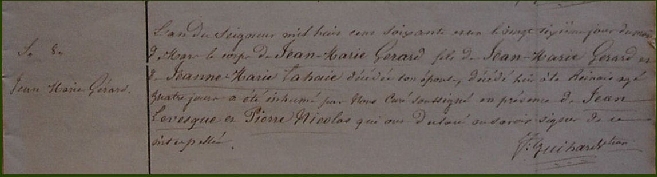 S. de
Jean Marie Gérard.
L'an du Seigneur mil huit cent soixante un le vingt sixième jour du mois
de Mars le corps de Jean-Marie Gerard fils de Jean-Marie Gérard et
de Jeanne-Marie Lahaie décédée son épouse, décédé hier à la agé
quatre jours a été inhumé par Nous Curé soussigné en présence de Jean
Levesque et Pierre Nicolas qui ont déclaré ne savoir signer de ce
interpellés.
Guihard